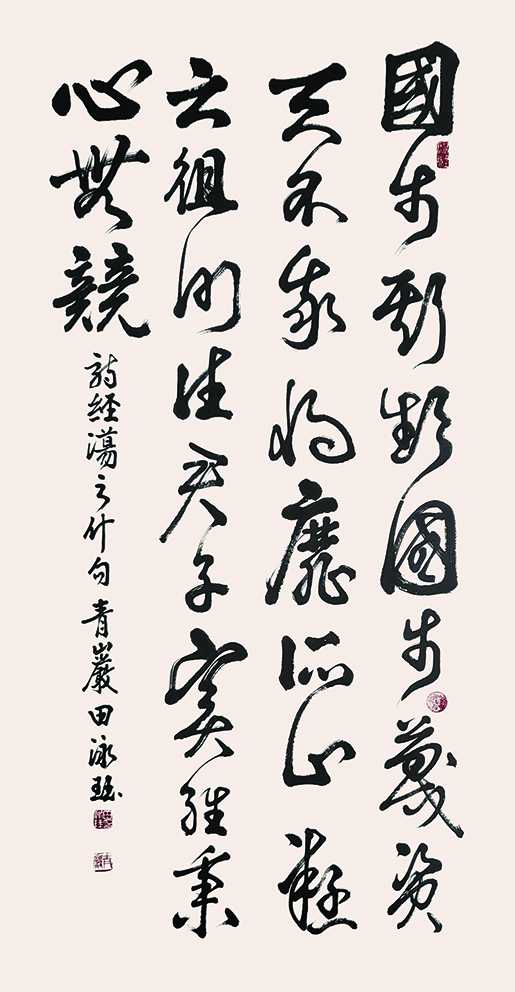 國步斯頻國步蔑資
天不我將靡所止疑
云徂何往君子實維秉
心無競
詩經蕩之什句 青巖田泳